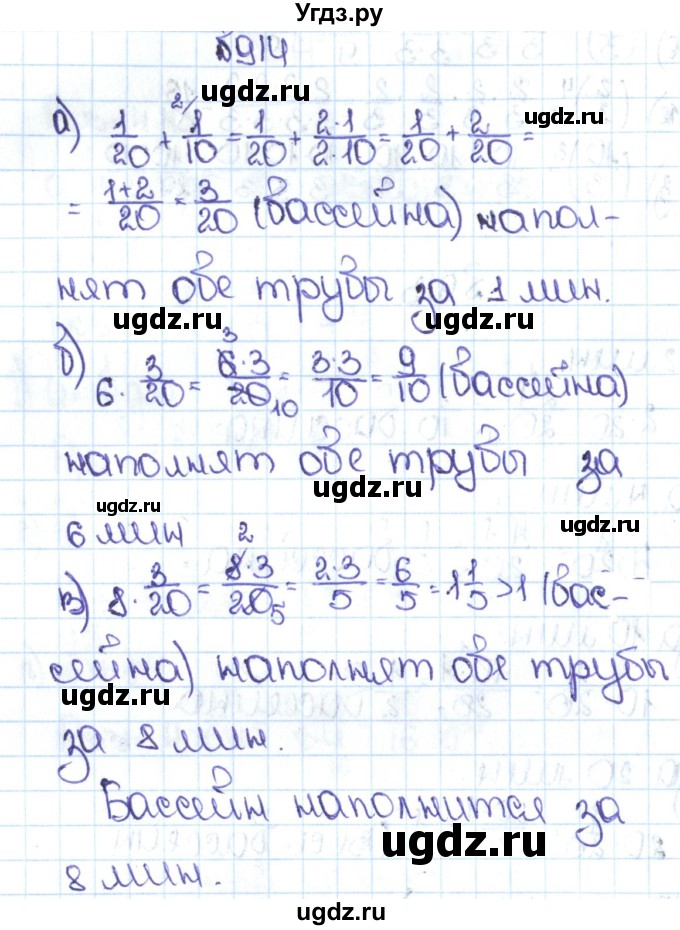 Угдз.ру
№914
ugdz.ru
а) 1/20 + 1/10 ²⁄ = 1/20 + 2·1/2·10 = 1/20 + 2/20 =
ugdz.ru
ugdz.ru
= 1+2/20 = 3/20 (бассейна) напол-
нят обе трубы за 1 мин.
ugdz.ru
ugdz.ru
б) 6 · 3/20 = 6·3/20 = 3·3/10 = 9/10 (бассейна)
3
10
ugdz.ru
наполнят обе трубы за
ugdz.ru
ugdz.ru
ugdz.ru
6 мин
в) 8 · 3/20 = 8·3/20 = 2·3/5 = 6/5 = 1 1/5 > 1 (бас-
2
5
ugdz.ru
сейна) наполнят обе трубы
ugdz.ru
ugdz.ru
за 8 мин.
Бассейн наполнится за
ugdz.ru
8 мин.
ugdz.ru